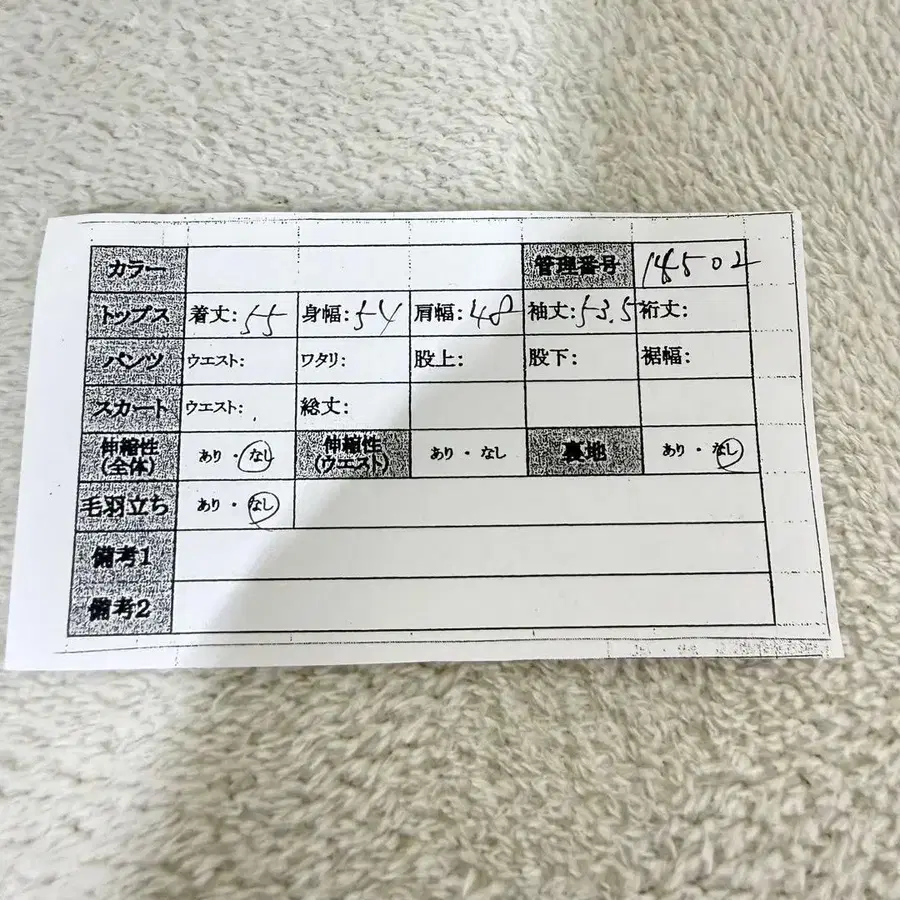 カラー 管理番号 18502
トップス 着丈: 55 身幅: 54 肩幅: 48 袖丈: 53.5 裄丈:
パンツ ウエスト: ワタリ: 股上: 股下: 裾幅:
スカート ウエスト: 総丈:
伸縮性(全体) あり・なし 伸縮性(ウエスト) あり・なし 裏地 あり・なし
毛羽立ち あり・なし
備考1
備考2